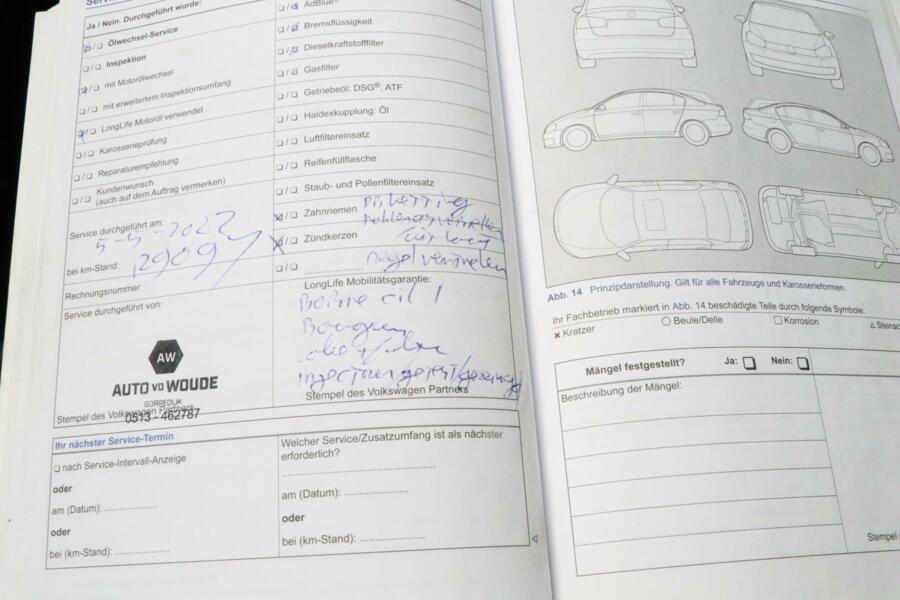 Ja / Nein. Durchgeführt wurde:
Ölwechsel-Service
Inspektion
mit Motorölwechsel
mit erweitertem Inspektionsumfang
LongLife Motoröl verwendet
Karosserieprüfung
Reparaturempfehlung
Kundenwunsch
(auch auf dem Auftrag vermerken)
Service durchgeführt am:
5-4-2022
bei km-Stand:
Rechnungsnummer:
Service durchgeführt von:
AW
AUTO VD WOUDE
GORREDIJK
0513 - 462787
Stempel des Volkswagen Partners
AdBlue®
Bremsflüssigkeit
Dieselkraftstofffilter
Gasfilter
Getriebeöl: DSG®, ATF
Haldexkupplung: Öl
Luftfiltereinsatz
Reifenfüllflasche
Staub- und Pollenfiltereinsatz
Zahnriemen
Zündkerzen
LongLife Mobilitätsgarantie:
Stempel des Volkswagen Partners
Ihr nächster Service-Termin
nach Service-Intervall-Anzeige
oder
am (Datum):
oder
bei (km-Stand):
Welcher Service/Zusatzumfang ist als nächster
erforderlich?
am (Datum):
oder
bei (km-Stand):
Abb. 14 Prinzipdarstellung. Gilt für alle Fahrzeuge und Karosserieformen.
Ihr Fachbetrieb markiert in Abb. 14 beschädigte Teile durch folgende Symbole:
Kratzer
Beule/Delle
Korrosion
Mängel festgestellt? Ja: Nein:
Beschreibung der Mängel:
Stempel